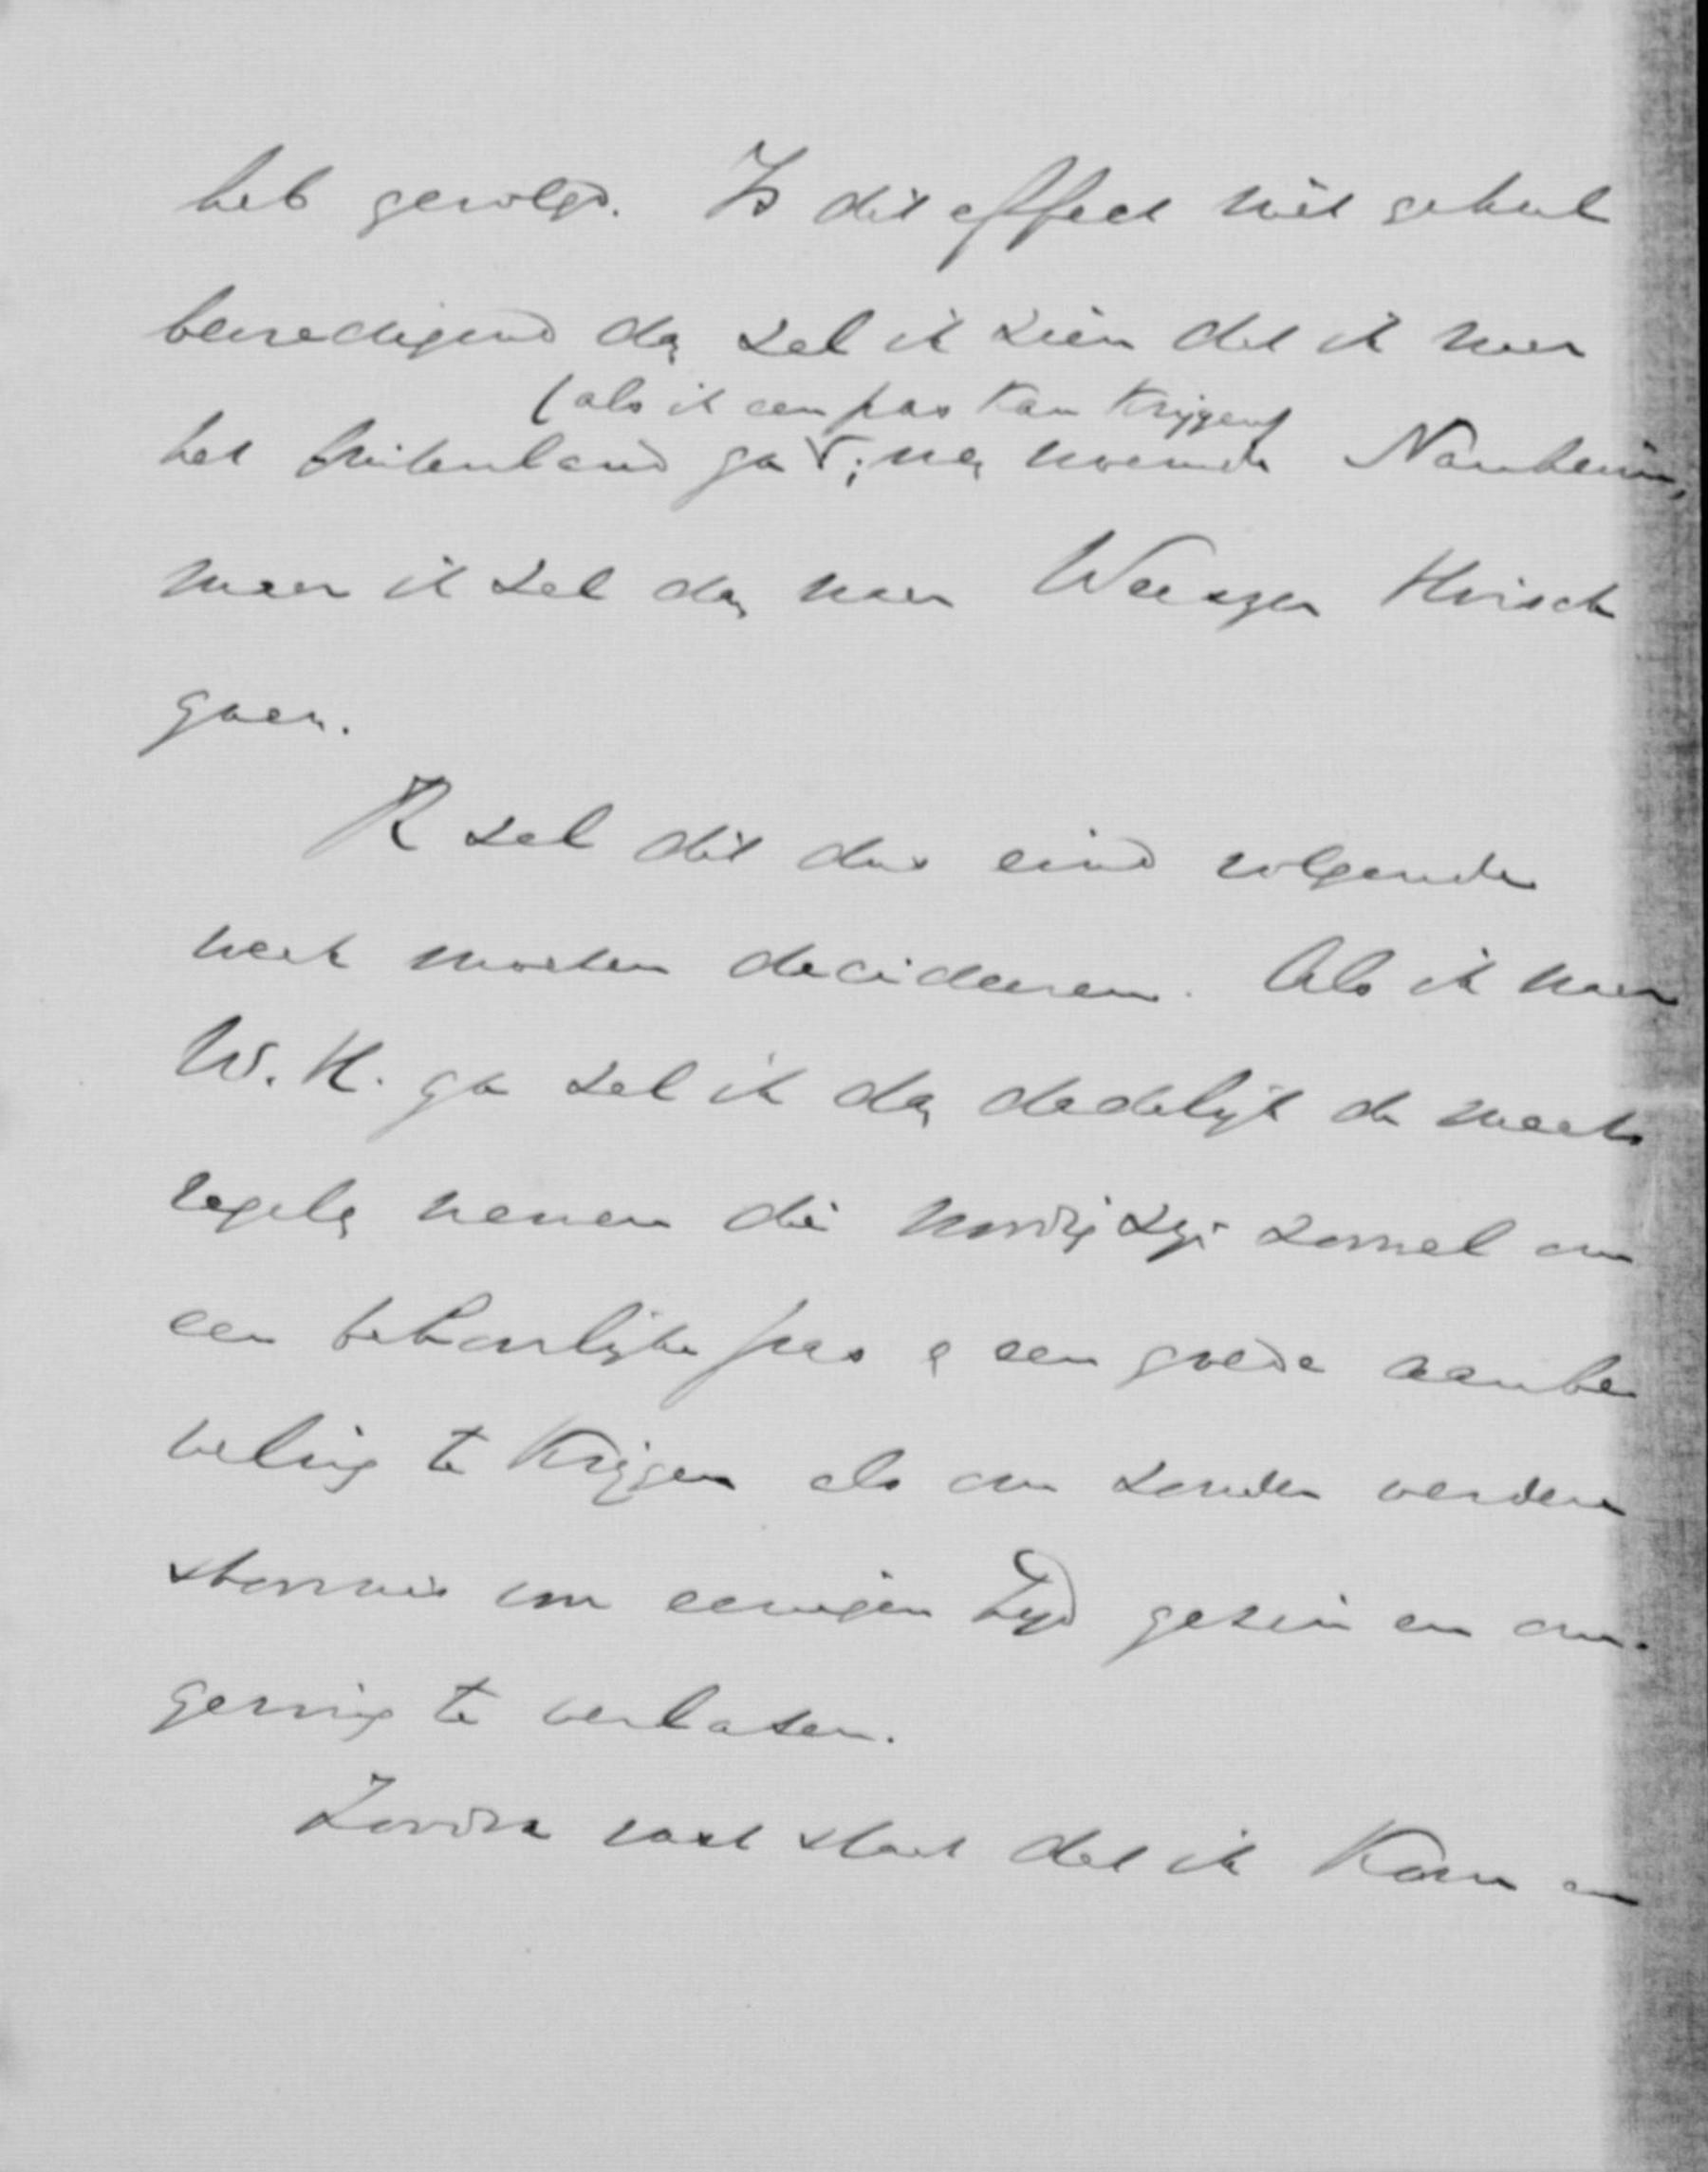 heb gevolgd. Is dit effect niet geheel
bevredigend dan zal ik zien dat ik naar
(als ik een pas kan krijgen)
het buitenland ga; men noemde Nauheim,
maar ik zal dan naar Weisser Hirsch
gaan.
Ik zal dit dus eind volgende
week moeten decideeren. Als ik naar
W. H. ga zal ik dan dadelijk de maat
regelen nemen die noodig zijn zoowel om
een behoorlijke pas en een goede aanbe
veling te krijgen als om zonder verdere
stoornis voor eenigen tijd gezin en om-
geving te verlaten.
Zoodra vast staat dat ik kom en